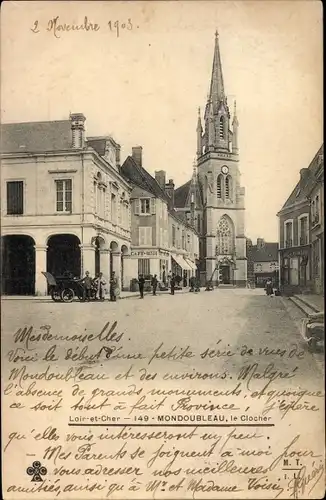 2 Novembre 1903
CAFÉ
Mesdemoiselles.
Voici le début d'une petite série de vues de
Mondoubleau et des environs. Malgré
l'absence de grands monuments et quoique
ce soit tout à fait Province, j'espère
Loir-et-Cher — 149 - MONDOUBLEAU, le Clocher
qu'elles vous intéresseront quand même
Mes Parents se joignent à moi pour
vous adresser nos meilleures
amitiés, ainsi qu'à Mr. et Madame Voisin,
M. T.
I. L.